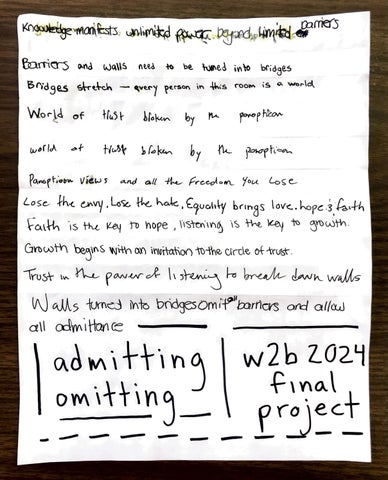 Knowledge manifests unlimited power beyond limited barriers
Barriers and walls need to be turned into bridges
Bridges stretch — every person in this room is a world
World of trust broken by the panopticon
world of trust broken by the panopticon
Panopticon views and all the Freedom You Lose
Lose the envy, Lose the hate, Equality brings love. hope & faith
Faith is the key to hope, listening is the key to growth.
Growth begins with an invitation to the circle of trust.
Trust in the power of listening to break down walls
Walls turned into bridges omit all barriers and allow
all admittance
admitting
omitting
w2b 2024
final
project